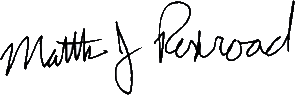 Matth J Rexroad